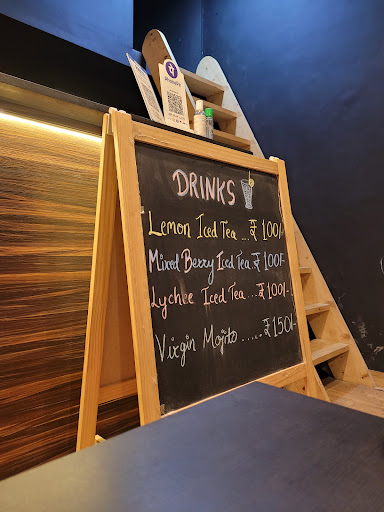 DRINKS
Lemon Iced Tea ... ₹ 100/-
Mixed Berry Iced Tea. ₹ 100/-
Lychee Iced Tea.... ₹ 100/-
Virgin Mojito ...... ₹ 150/-